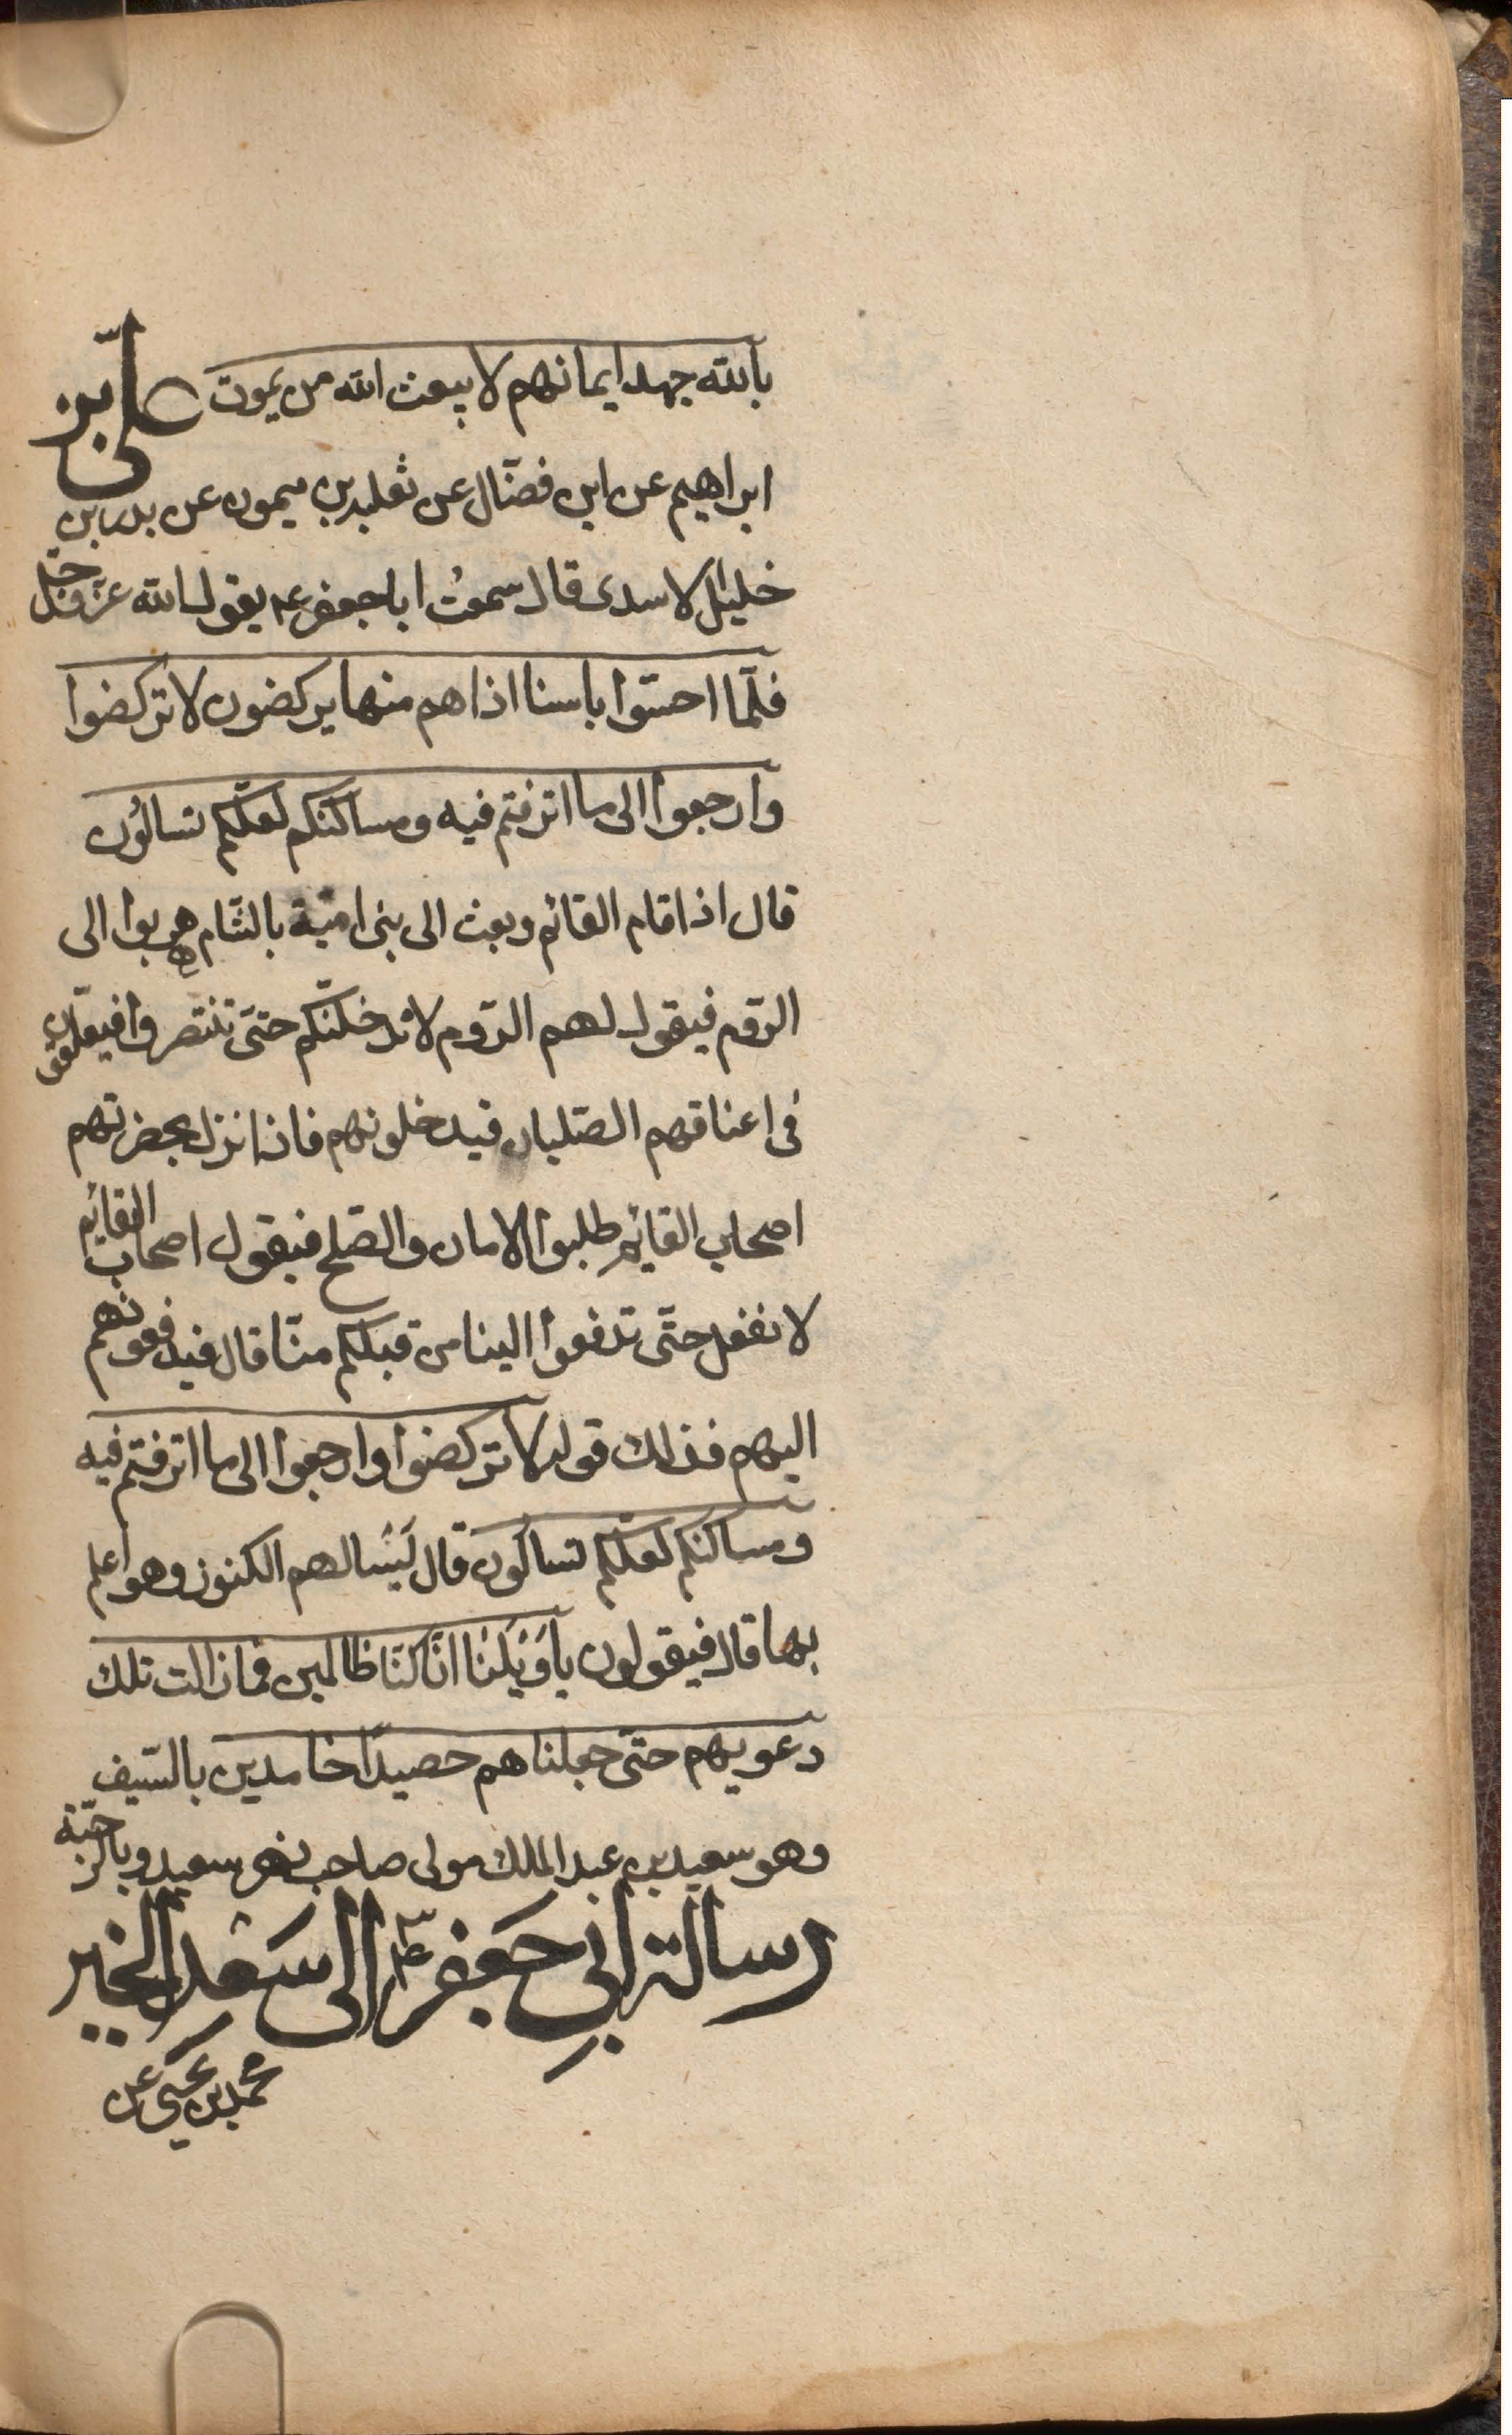 بالله جهد ايمانهم لا يبعث الله من يموت علىّ بن
ابراهيم عن ابن فضّال عن ثعلبة بن ميمون عن بدر بن
خليل الاسدى قال سمعتُ ابا جعفر عم يقول الله عزّ وجلّ
فلمّا احسّوا باسنا اذا هم منها يركضون لا تركضوا
وارجعوا الى ما اترفتم فيه ومساكنكم لعلّكم تسالُون
قال اذا قام القائم وبعث الى بنى اميّة بالشّام هربوا الى
الرّوم فيقول لهم الرّوم لا ندخلنّكم حتىّ تنتصروا فيعلّقون
فى اعناقهم الصّلبان فيدخلونهم فاذا نزل بحضرتهم
اصحاب القايم طلبوا الامان والصّلح فيقول اصحاب القايم
لا نفعل حتّى تدفعوا الينا من قبلكم منّا قال فيدفعونهم
اليهم فذلك قوله لا تركضوا وارجعوا الى ما اترفتم فيه
ومساكنكم لعلّكم تسالون قال يَسُالهم الكنوز وهو اعلم
بها قال فيقولون ياوَيْلَنٰا انّا كنّا ظالمين فما زالت تلك
دعويهم حتّى جعلناهم حصيدًا خامدين بالسّيف
وهو سعيد بن عبد الملك مولى صاحب نهر سعيد بالرّحبة
رسالة ابى جعفر عم الى سَعْدِ الخير
محمد بن يحيى عن